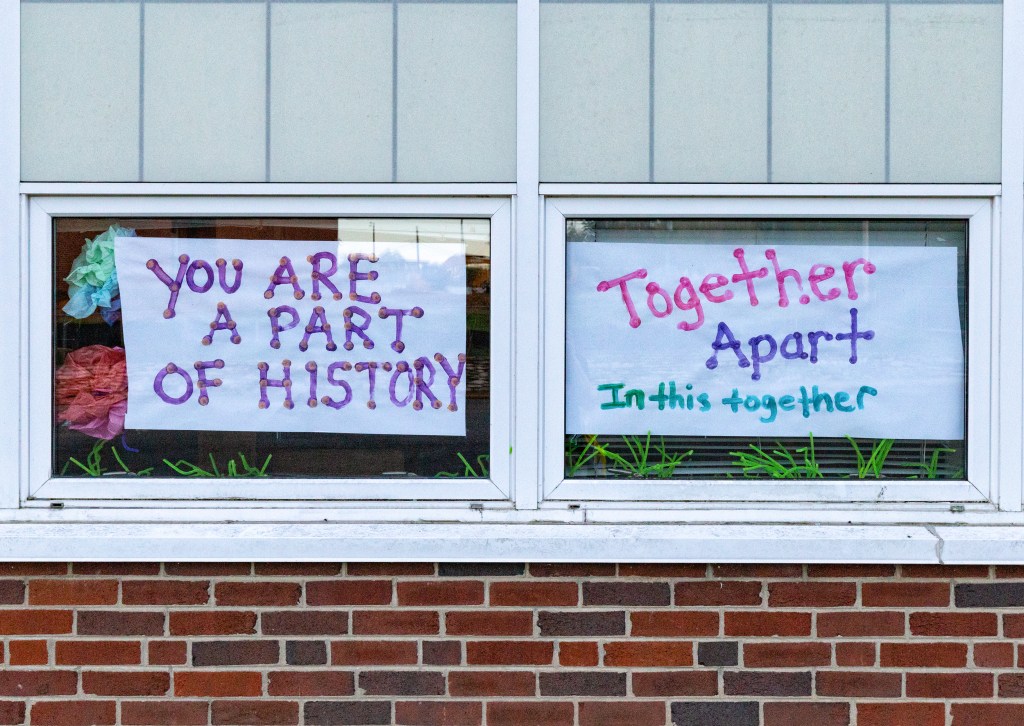 YOU ARE
A PART
OF HISTORY
Together
Apart
In this together